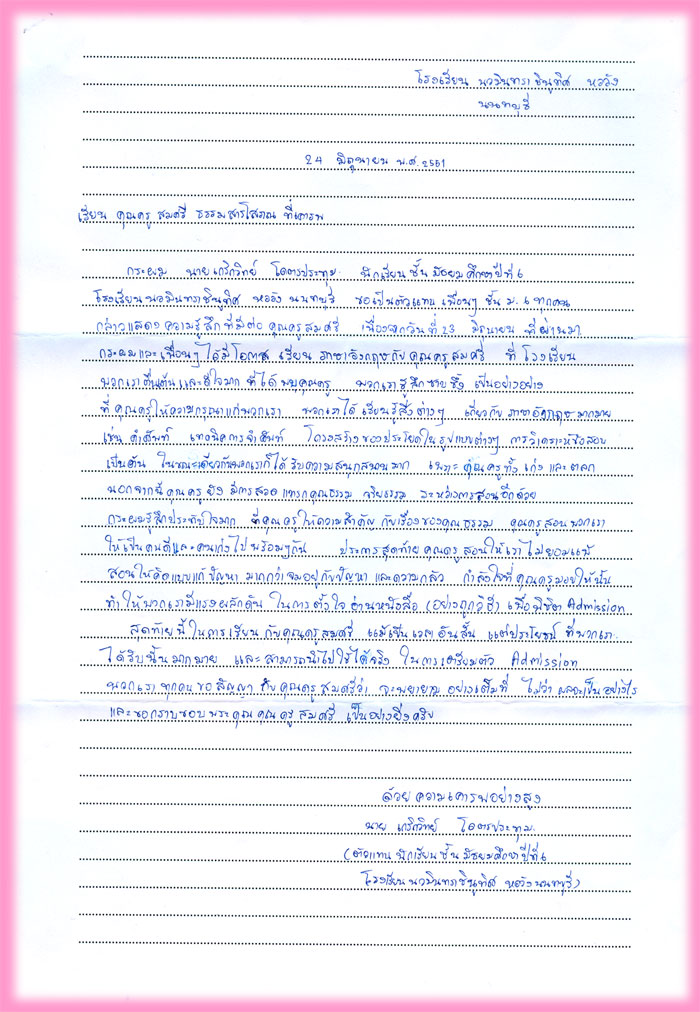 โรงเรียน นวมินทราชินูทิศ หอวัง
นนทบุรี
24 มิถุนายน พ.ศ. 2551
เรียน คุณครู สมศรี ธรรมสารโสภณ ที่เคารพ
กระผม นาย เกริกวิทย์ โคตรประทุม นักเรียนชั้นมัธยมศึกษาปีที่ 6
โรงเรียนนวมินทราชินูทิศ หอวัง นนทบุรี ขอเป็นตัวแทน เพื่อนๆ ชั้น ม.6 ทุกคน
กล่าวแสดงความรู้สึกที่มีต่อ คุณครูสมศรี เนื่องจากวันที่ 23 มิถุนายน ที่ผ่านมา
กระผมและเพื่อนๆ ได้มีโอกาส เรียน ภาษาอังกฤษกับคุณครูสมศรี ที่โรงเรียน
พวกเราตื่นเต้นและดีใจมาก ที่ได้พบคุณครู พวกเรารู้สึกซาบซึ้ง เป็นอย่างอย่าง
ที่คุณครูให้ความกรุณาแก่พวกเรา พวกเราได้เรียนรู้สิ่งต่างๆ เกี่ยวกับภาษาอังกฤษมากมาย
เช่น คำศัพท์ เทคนิคการจำศัพท์ โครงสร้างของประโยคในรูปแบบต่างๆ การวิเคราะห์ข้อสอบ
เป็นต้น ในขณะเดียวกันพวกเราก็ได้รับความสนุกสนานมาก เพราะคุณครูทั้งเก่งและตลก
นอกจากนี้คุณครูยังมีการสอดแทรกคุณธรรม จริยธรรม ระหว่างการสอนอีกด้วย
กระผมรู้สึกประทับใจมาก ที่คุณครูให้ความสำคัญกับเรื่องของคุณธรรม คุณครูสอนพวกเรา
ให้เป็นคนดีและคนเก่งไปพร้อมๆกัน ประการสุดท้ายคุณครูสอนให้เราไม่ยอมแพ้
สอนให้คิดแบบแก้ปัญหา มากกว่าจมอยู่กับปัญหาและความกลัว กำลังใจที่คุณครูมอบให้นั้น
ทำให้พวกเรามีแรงผลักดัน ในการตั้งใจอ่านหนังสือ (อย่างถูกวิธี) เพื่อพิชิต Admission
สุดท้ายนี้ในการเรียนกับคุณครูสมศรี แม้เป็นเวลาอันสั้น แต่ประโยชน์ที่พวกเรา
ได้รับนั้นมากมาย และสามารถนำไปใช้ได้จริง ในการเตรียมตัว Admission
พวกเราทุกคนขอสัญญากับคุณครูสมศรีว่า จะพยายามอย่างเต็มที่ ไม่ว่าผลจะเป็นอย่างไร
และขอกราบขอบพระคุณคุณครูสมศรี เป็นอย่างยิ่งครับ
ด้วยความเคารพอย่างสูง
นาย เกริกวิทย์ โคตรประทุม
(ตัวแทน นักเรียนชั้นมัธยมศึกษาปีที่ 6
โรงเรียนนวมินทราชินูทิศ หอวังนนทบุรี)